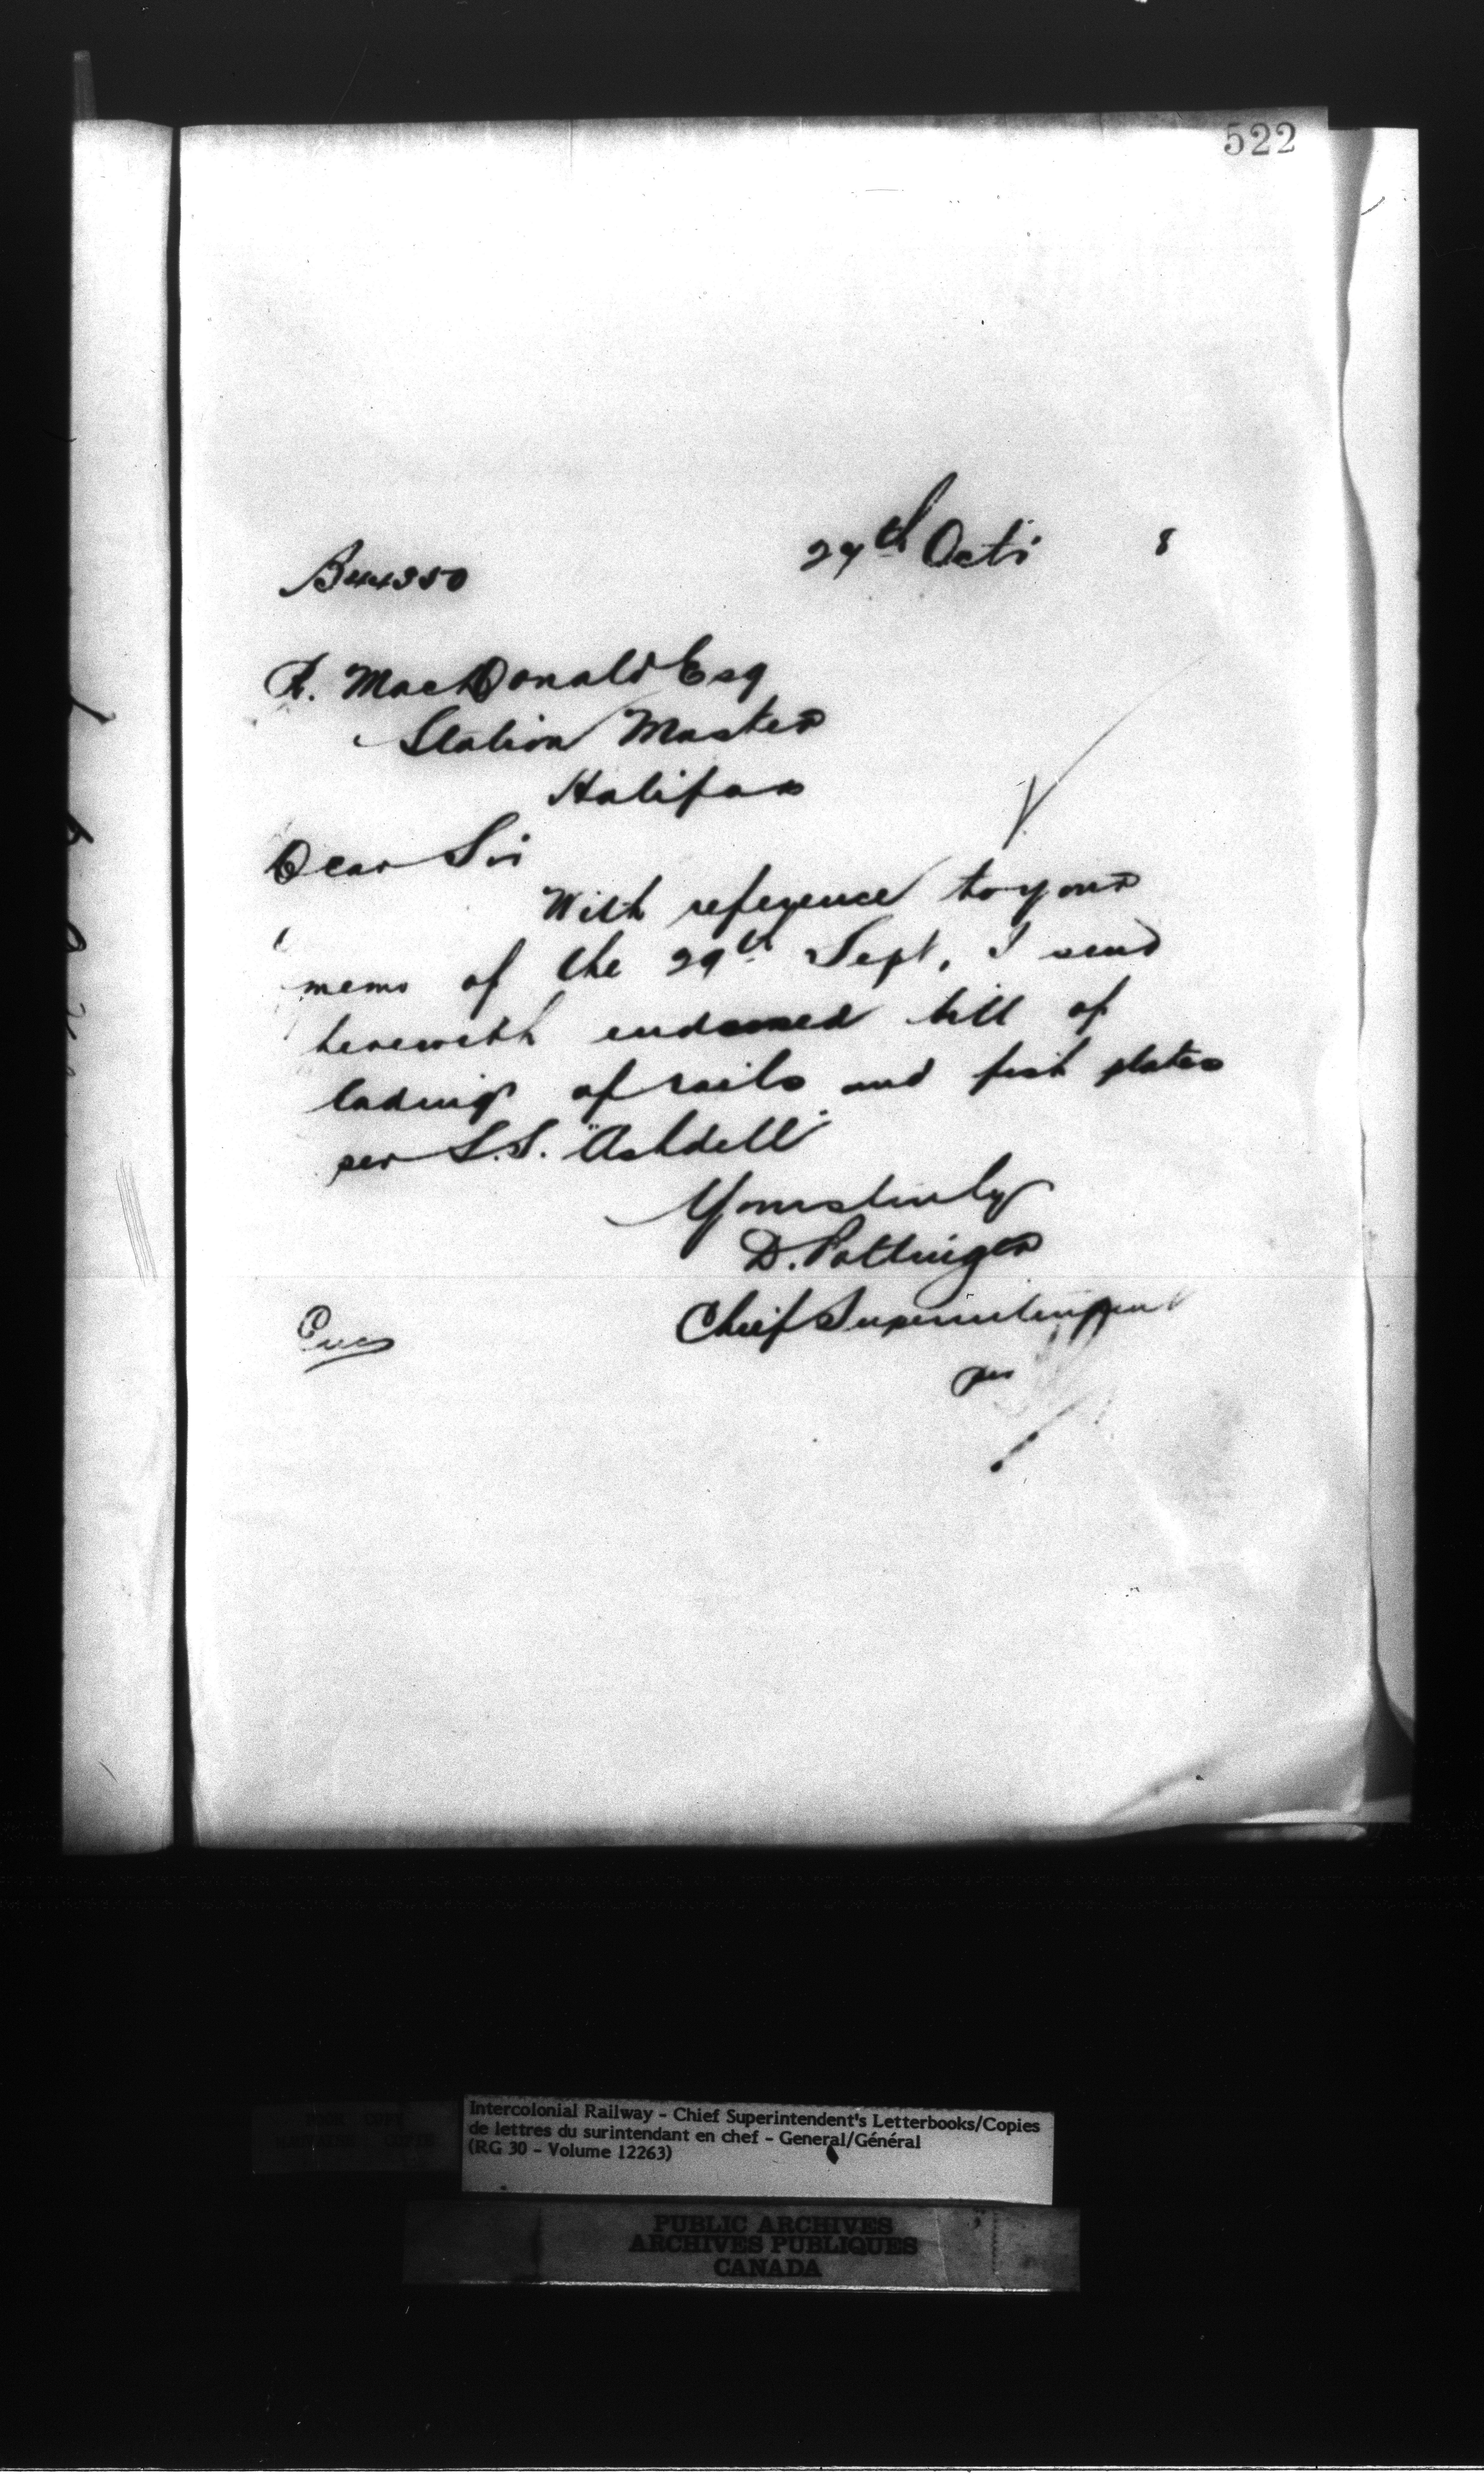 522
27th Oct. 8
B44350
R. MacDonald Esq
Station Master
Halifax
Dear Sir
With reference to your
memo of the 29th Sept, I send
herewith endorsed bill of
lading of rails and fish plates
per S.S. "Ashdell"
Yours truly
D. Pottinger
Chief Superintendent
per
Enc
Intercolonial Railway - Chief Superintendent's Letterbooks/Copies
de lettres du surintendant en chef - General/Général
(RG 30 - Volume 12263)
PUBLIC ARCHIVES
ARCHIVES PUBLIQUES
CANADA